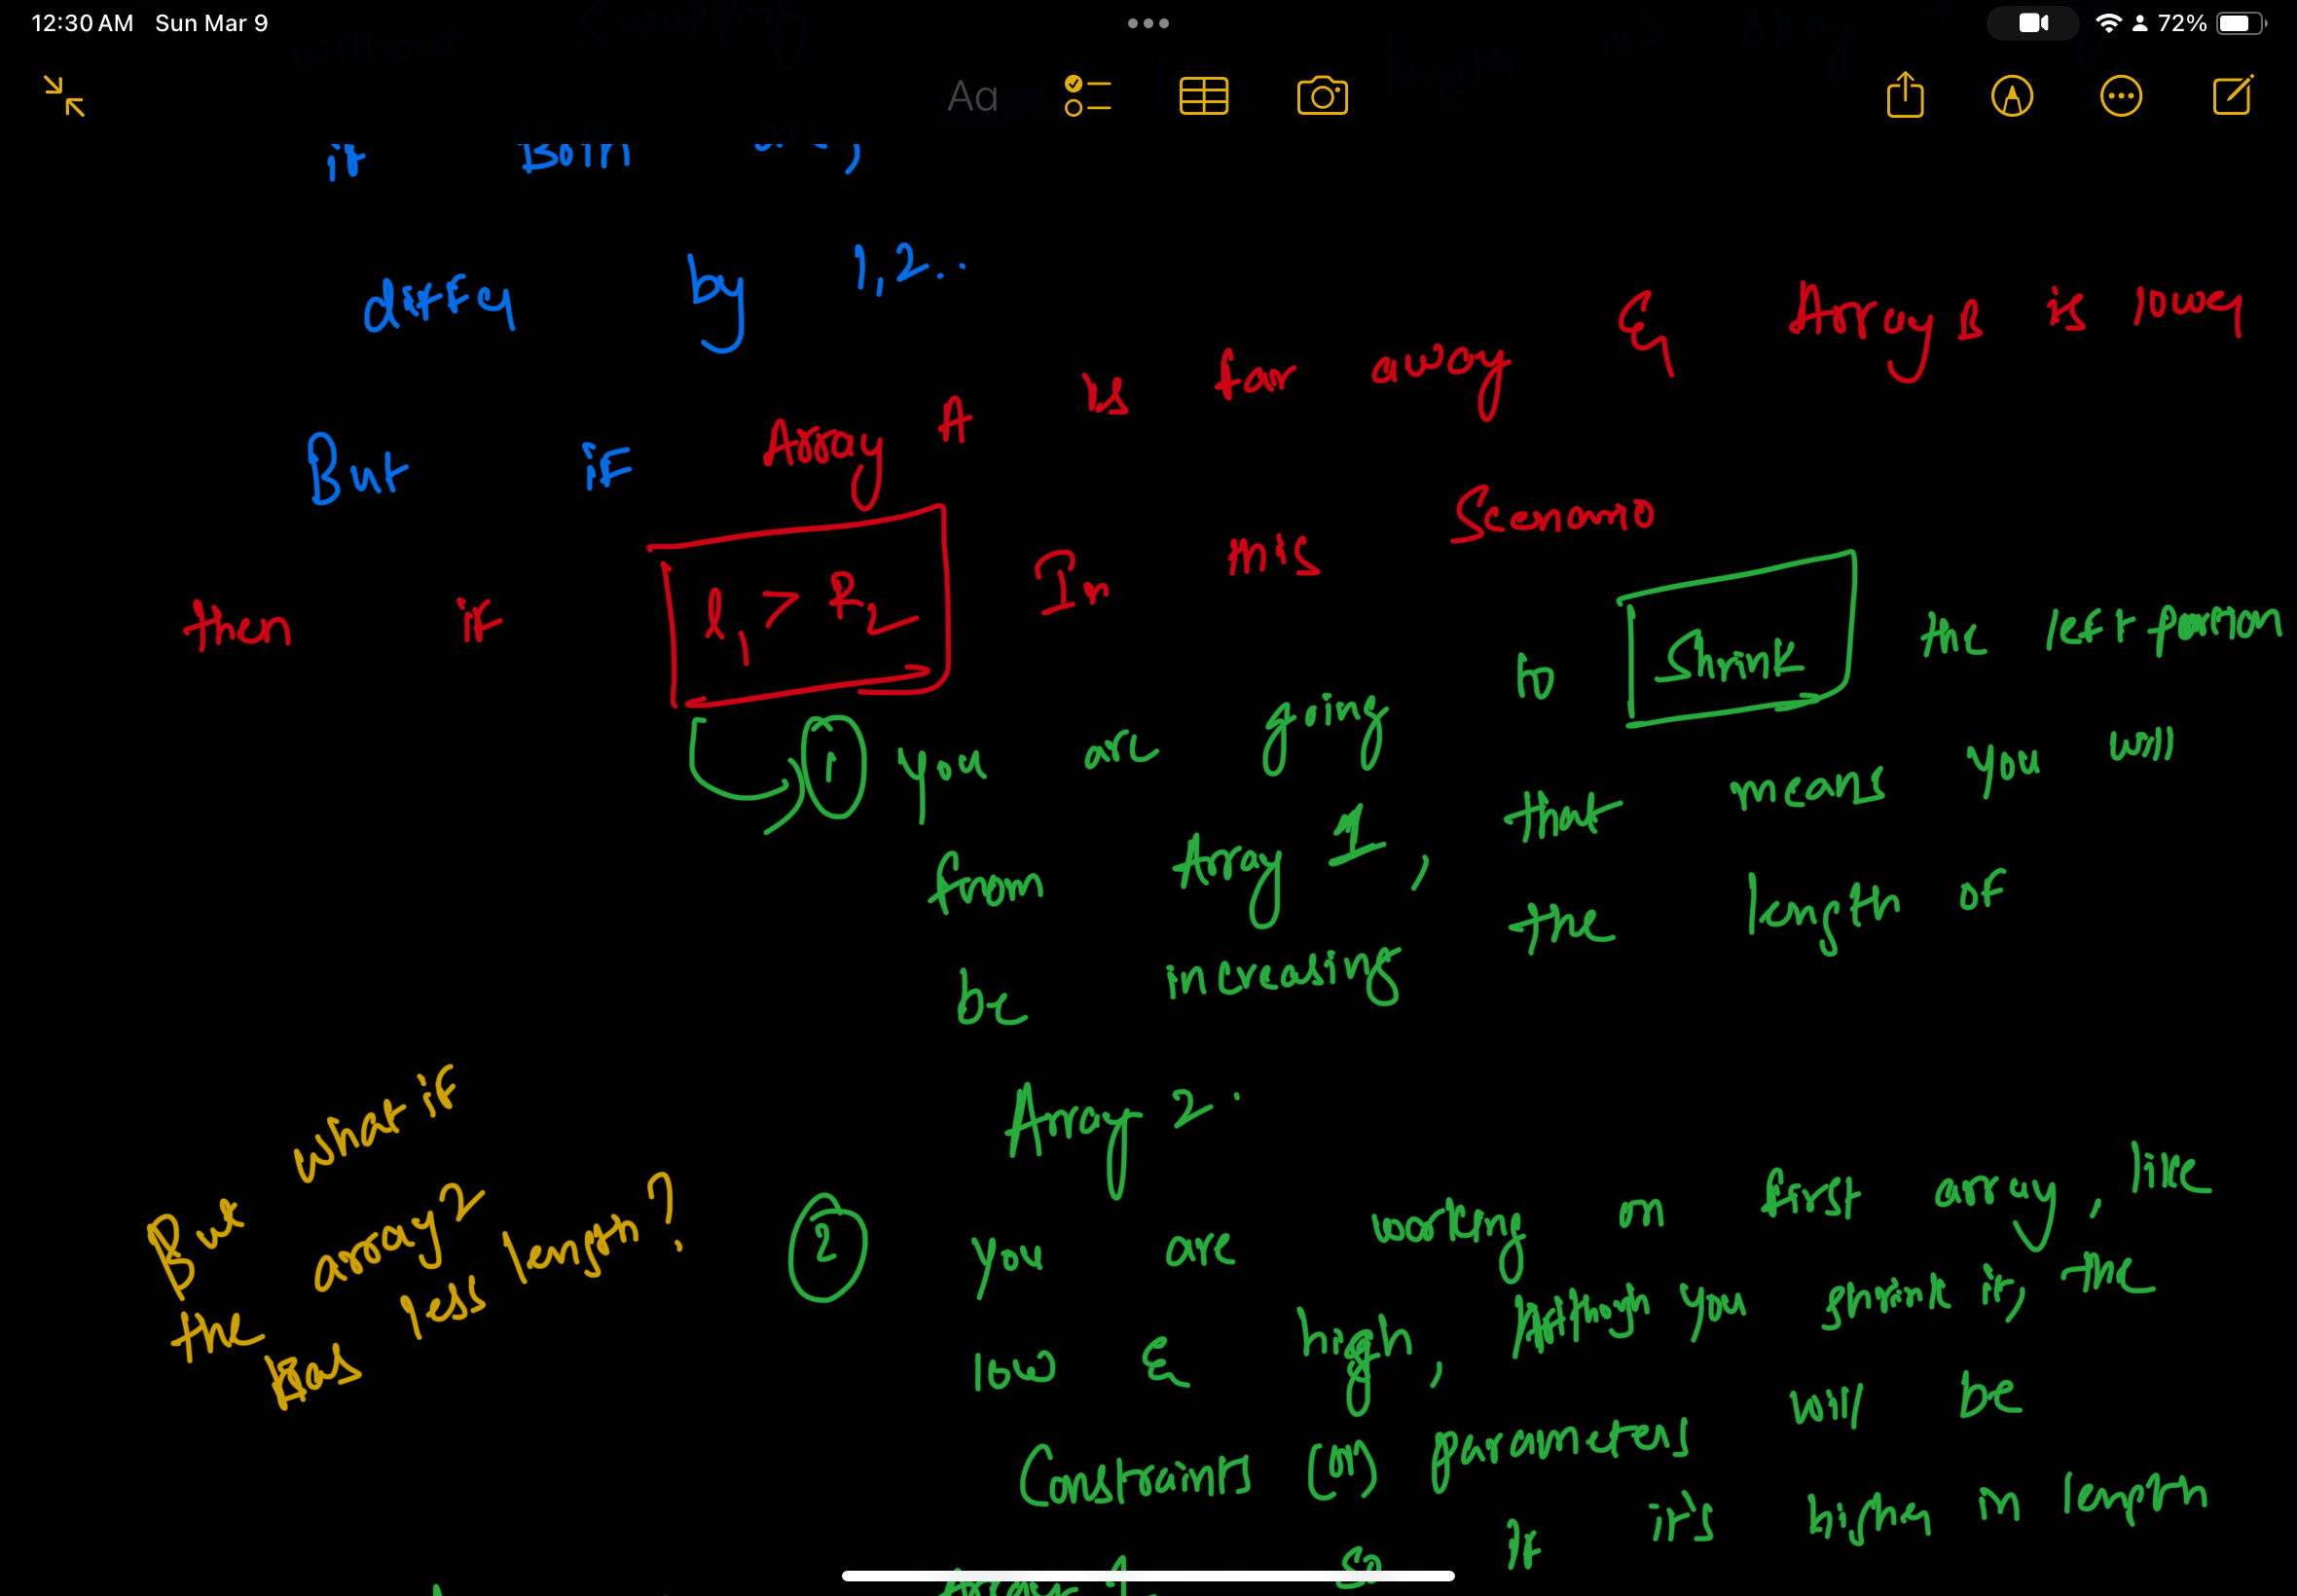 12:30 AM Sun Mar 9
72%
without swapping length is okay
Aa
if Both are,
differ by 1,2..
But if Array A is far away & Array B is lower
then if l₁ > R₂ In this Scenario
1 you are going to Shrink the left portion
from Array 1, that means you will
be increasing the length of
Array 2.
But what if
the array2
has less length?
2 you are working on first array, like
low & high, Although you shrink it, the
Constraints (or) parameters will be
Array 1 So if it's higher in length